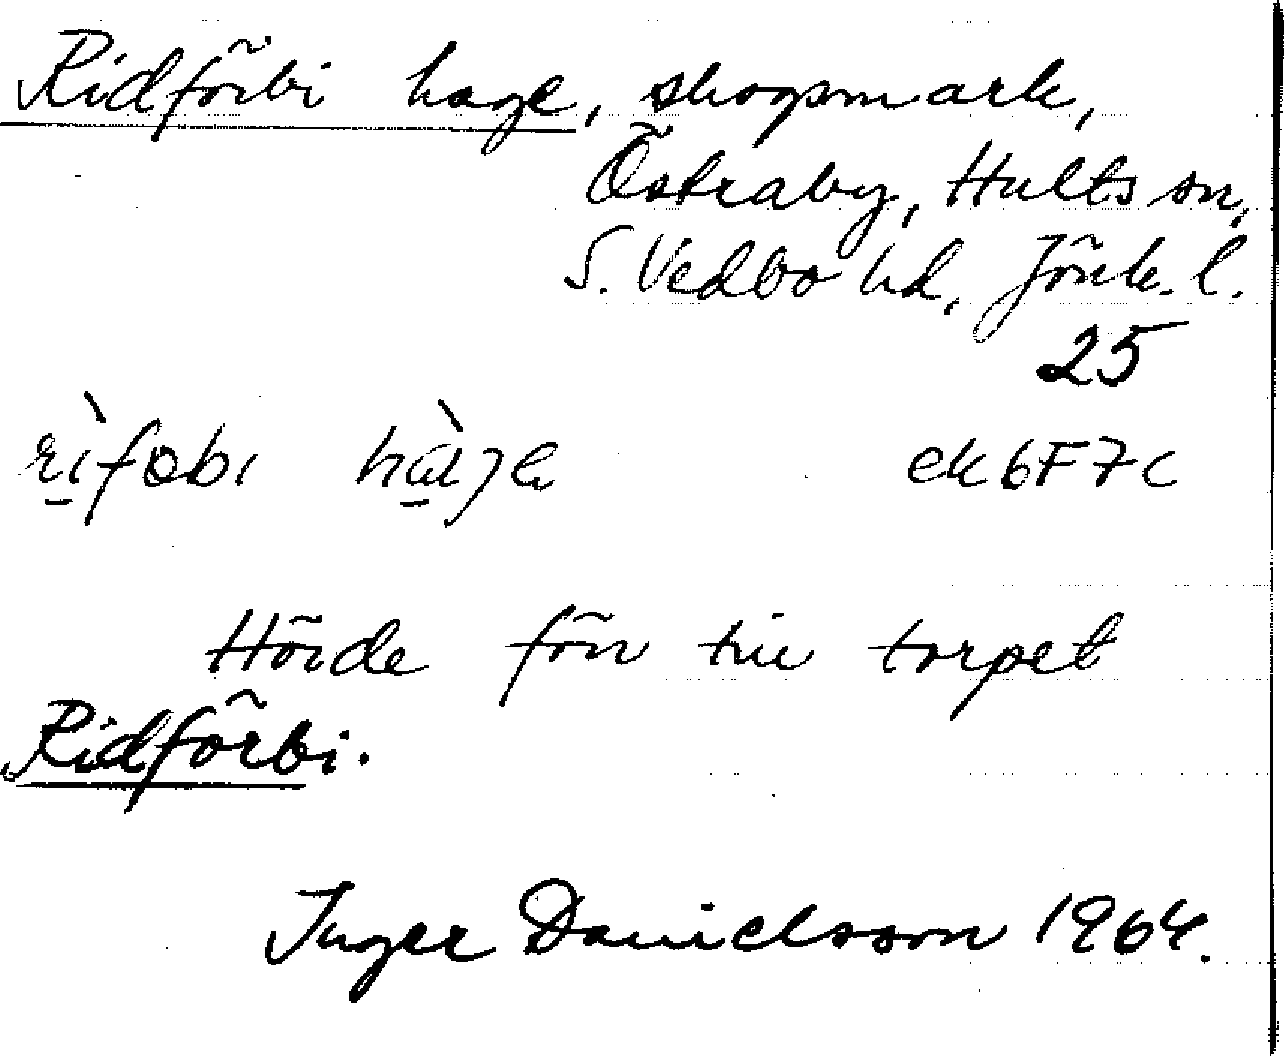 Ridförbi hage, skogsmark,
Östraby, Hults sn,
S. Vedbo hd, Jönk. l.
25
rìfəbɩ hàgɐ ek 6F7c
Hörde förr till torpet
Ridförbi.
Inger Danielsson 1964.